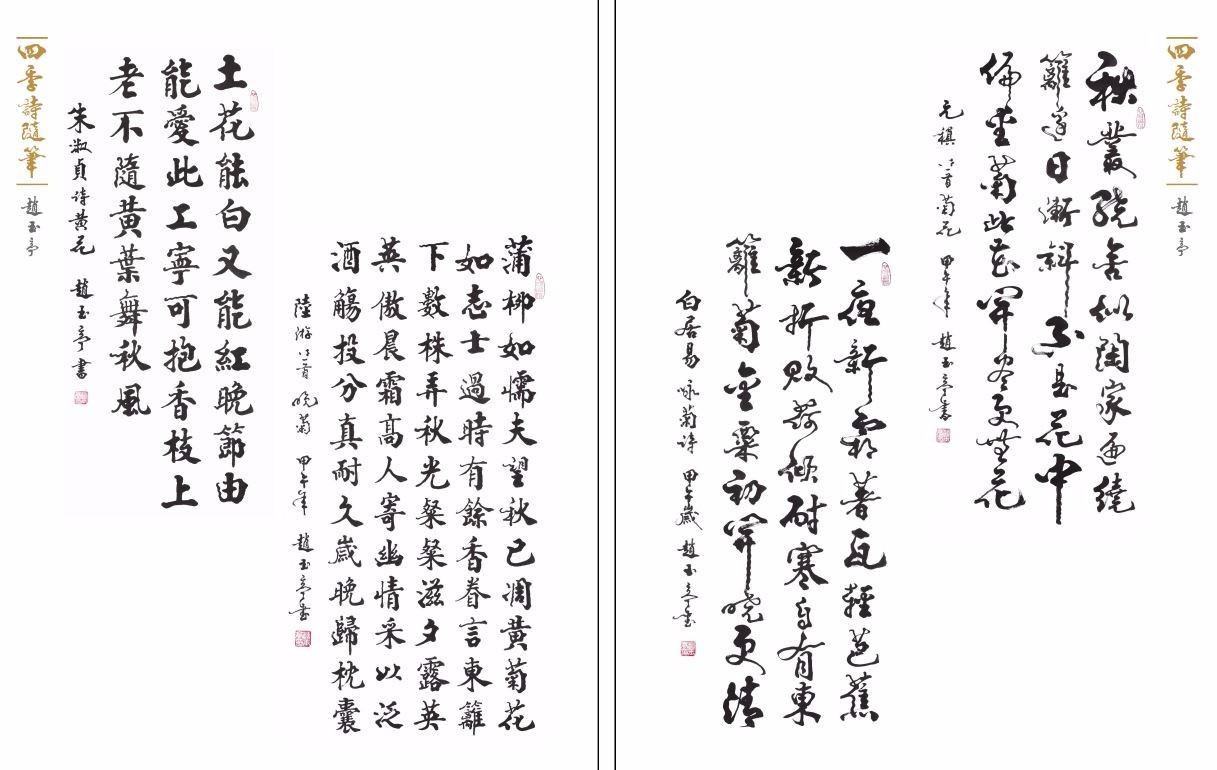 四季詩隨筆
趙玉亭
秋叢繞舍似陶家遍繞
籬邊日漸斜不是花中
偏愛菊此花開盡更無花
元稹 菊花 甲午年 趙玉亭書
一夜新霜著瓦輕芭蕉
新折敗荷傾耐寒唯有東
籬菊金粟初開曉更清
白居易 咏菊诗 甲午歲 趙玉亭書
蒲柳如懦夫望秋已凋黄菊花
如志士過時有餘香眷言東籬
下數株弄秋光粲粲滋夕露英
英傲晨霜高人寄幽情采以泛
酒觴投分真耐久歲晚歸枕囊
陸游 晚菊 甲午年 趙玉亭書
土花能白又能紅晚節由
能愛此工寧可抱香枝上
老不隨黄葉舞秋風
朱淑貞诗黄花 趙玉亭書
四季詩隨筆
趙玉亭